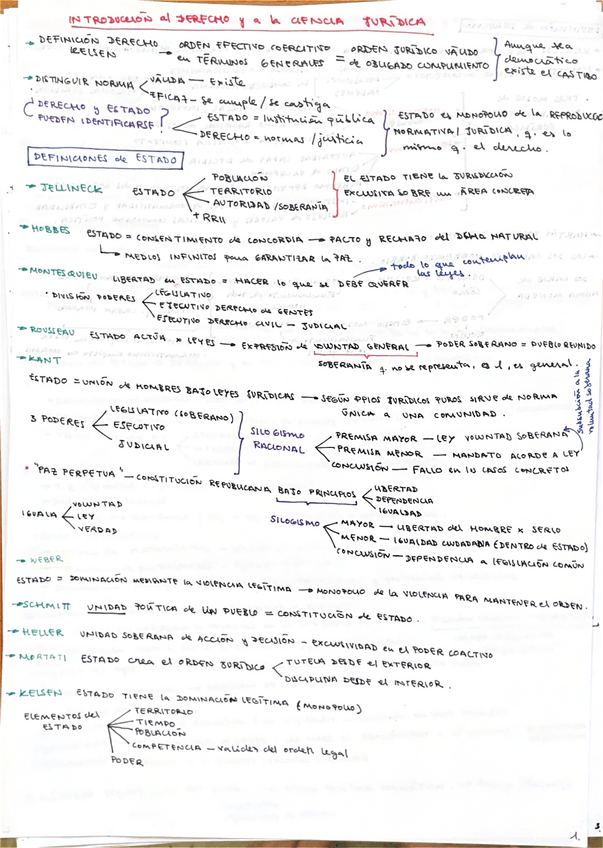 INTRODUCCIÓN al DERECHO y a la CIENCIA JURÍDICA
DEFINICIÓN DERECHO KELSEN → ORDEN EFECTIVO COERCITIVO en TÉRMINOS GENERALES = ORDEN JURÍDICO VÁLIDO de OBLIGADO CUMPLIMIENTO
Aunque sea democrático existe el CASTIGO
DISTINGUIR NORMA
VÁLIDA — Existe
EFICAZ - Se cumple / se castiga
¿DERECHO y ESTADO PUEDEN IDENTIFICARSE?
ESTADO = Institución pública
DERECHO = normas / justicia
ESTADO es MONOPOLIO de la REPRODUCC
NORMATIVA / JURÍDICA, q. es lo
mismo q. el derecho.
DEFINICIONES de ESTADO
JELLINECK ESTADO
POBLACIÓN
TERRITORIO
AUTORIDAD / SOBERANÍA
+ RRII
EL ESTADO TIENE LA JURISDICCIÓN
EXCLUSIVA SOBRE UN ÁREA CONCRETA
HOBBES ESTADO = CONSENTIMIENTO de CONCORDIA → PACTO y RECHAZO del DCHO NATURAL
MEDIOS INFINITOS para GARANTIZAR la PAZ.
MONTESQUIEU LIBERTAD en ESTADO = HACER lo que se DEBE QUERER
→ todo lo que contemplan las leyes.
· DIVISIÓN PODERES
LEGISLATIVO
EJECUTIVO DERECHO de GENTES
EJECUTIVO DERECHO CIVIL - JUDICIAL
ROUSSEAU ESTADO ACTÚA x LEYES → EXPRESIÓN de VOLUNTAD GENERAL → PODER SOBERANO = PUEBLO REUNIDO
SOBERANÍA q. no se representa, es 1, es general.
KANT
ESTADO = UNIÓN de HOMBRES BAJO LEYES JURÍDICAS → SEGÚN PPIOS JURÍDICOS PUROS SIRVE de NORMA
ÚNICA a UNA COMUNIDAD.
3 PODERES
LEGISLATIVO (SOBERANO)
EJECUTIVO
JUDICIAL
SILOGISMO RACIONAL
PREMISA MAYOR — LEY VOLUNTAD SOBERANA
PREMISA MENOR — MANDATO ACORDE A LEY
CONCLUSIÓN — FALLO en los CASOS CONCRETOS
a la voluntad soberana
"PAZ PERPETUA" — CONSTITUCIÓN REPUBLICANA BAJO PRINCIPIOS
LIBERTAD
DEPENDENCIA
IGUALDAD
IGUALA
VOLUNTAD
LEY
VERDAD
SILOGISMO
MAYOR — LIBERTAD del HOMBRE x SERLO
MENOR — IGUALDAD CIUDADANA (DENTRO de ESTADO)
CONCLUSIÓN — DEPENDENCIA a LEGISLACIÓN COMÚN
WEBER
ESTADO = DOMINACIÓN MEDIANTE LA VIOLENCIA LEGÍTIMA → MONOPOLIO DE LA VIOLENCIA PARA MANTENER el ORDEN.
SCHMITT UNIDAD POLÍTICA de UN PUEBLO = CONSTITUCIÓN de ESTADO.
HELLER UNIDAD SOBERANA de ACCIÓN y DECISIÓN - EXCLUSIVIDAD en el PODER COACTIVO
MORTATI ESTADO crea el ORDEN JURÍDICO
TUTELA DESDE el EXTERIOR
DISCIPLINA DESDE el INTERIOR.
KELSEN ESTADO TIENE LA DOMINACIÓN LEGÍTIMA (MONOPOLIO)
ELEMENTOS del ESTADO
TERRITORIO
TIEMPO
POBLACIÓN
COMPETENCIA — validez del orden legal
PODER
1.
3